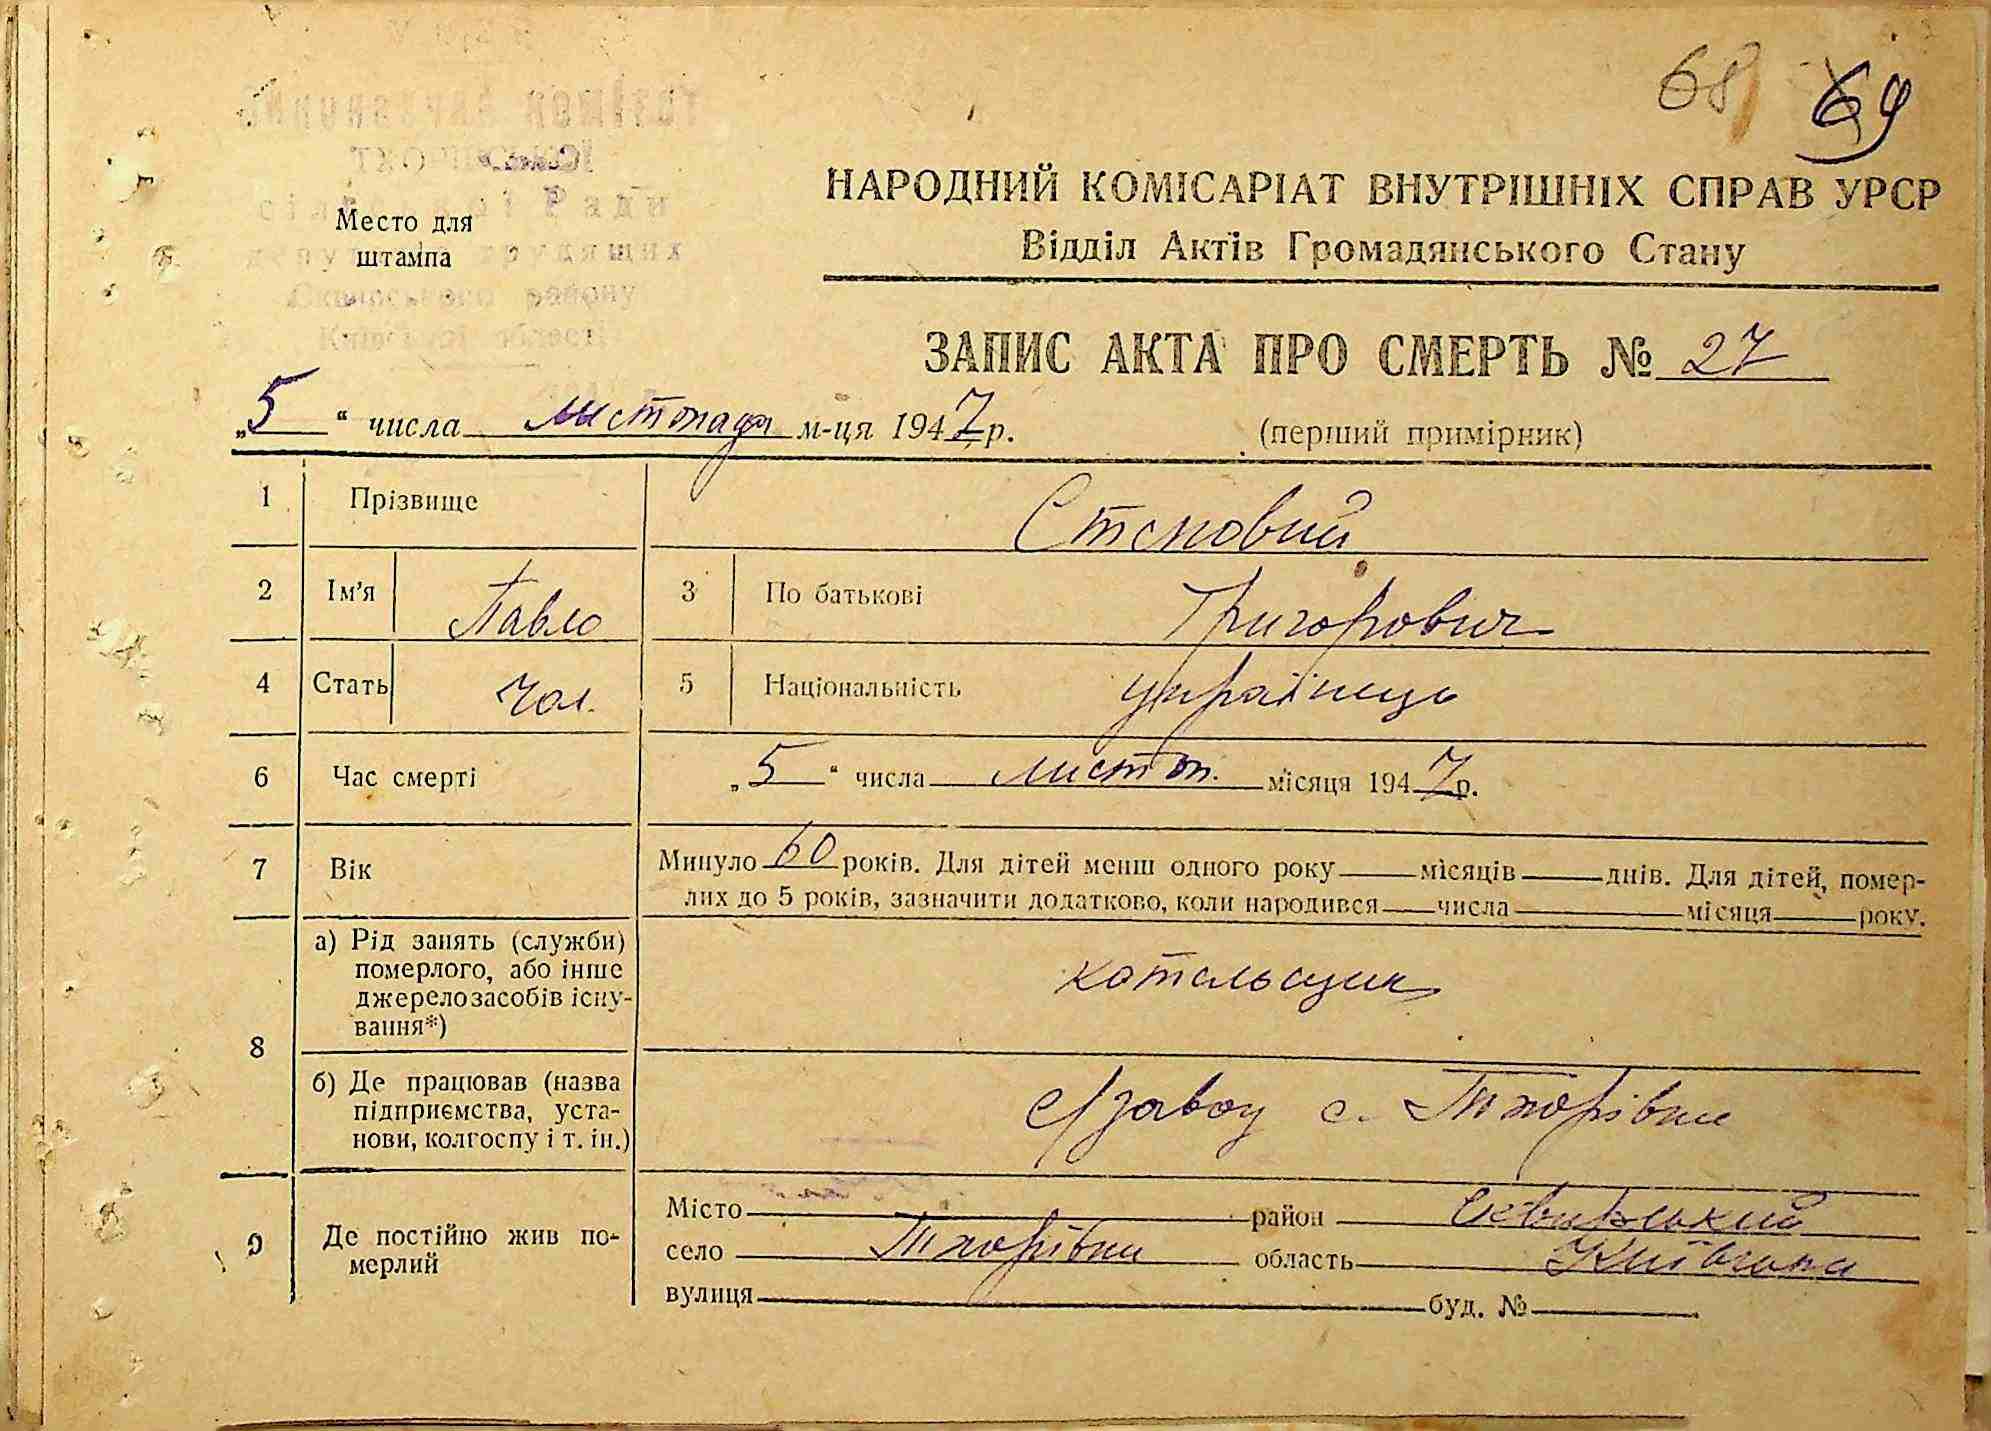 68 69
НАРОДНИЙ КОМІСАРІАТ ВНУТРІШНІХ СПРАВ УРСР
Відділ Актів Громадянського Стану
Место для
штампа
сільської Ради
депутатів трудящих
Сквирського району
Київської області
ЗАПИС АКТА ПРО СМЕРТЬ № 27
„5“ числа листопада м-ця 1947 р.
(перший примірник)
1 Прізвище Степовий
2 Ім'я Павло 3 По батькові Григорович
4 Стать Чол. 5 Національність українець
6 Час смерті „5“ числа листоп. місяця 1947 р.
7 Вік Минуло 60 років. Для дітей менш одного року місяців днів. Для дітей, помер-
лих до 5 років, зазначити додатково, коли народився числа місяця року.
8 а) Рід занять (служби)
померлого, або інше
джерело засобів існу-
вання*)
котельщик
б) Де працював (назва
підприємства, уста-
нови, колгоспу і т. ін.)
с/завод с. Тхорівки
9 Де постійно жив по-
мерлий
Місто район Сквирський
село Тхорівки область Київська
вулиця буд. №